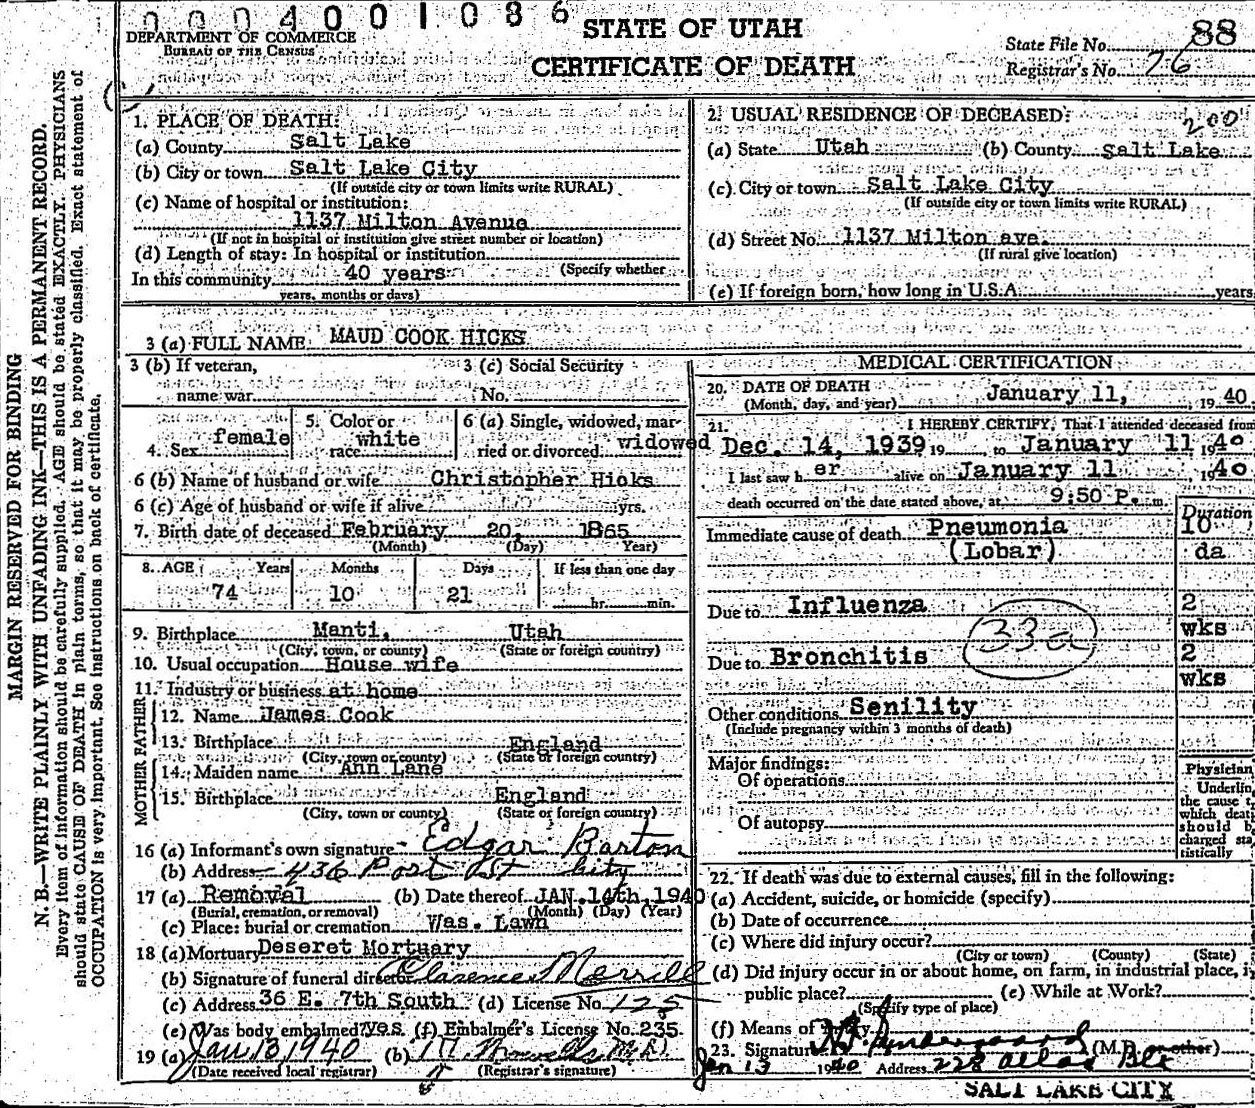 0004001086
DEPARTMENT OF COMMERCE
BUREAU OF THE CENSUS
STATE OF UTAH
CERTIFICATE OF DEATH
State File No. 88
Registrar's No. 76
MARGIN RESERVED FOR BINDING
N. B.—WRITE PLAINLY WITH UNFADING INK—THIS IS A PERMANENT RECORD.
Every item of information should be carefully supplied. AGE should be stated EXACTLY. PHYSICIANS
should state CAUSE OF DEATH in plain terms, so that it may be properly classified. Exact statement of
OCCUPATION is very important. See instructions on back of certificate.
1. PLACE OF DEATH:
(a) County Salt Lake
(b) City or town Salt Lake City
(If outside city or town limits write RURAL)
(c) Name of hospital or institution:
1137 Milton Avenue
(If not in hospital or institution give street number or location)
(d) Length of stay: In hospital or institution
(Specify whether
In this community 40 years
years, months or days)
2. USUAL RESIDENCE OF DECEASED:
200
(a) State Utah (b) County Salt Lake
(c) City or town Salt Lake City
(If outside city or town limits write RURAL)
(d) Street No. 1137 Milton ave.
(If rural give location)
(e) If foreign born, how long in U.S.A. years
3 (a) FULL NAME MAUD COOK HICKS
3 (b) If veteran,
name war
3 (c) Social Security
No.
4. Sex female
5. Color or
race white
6 (a) Single, widowed, mar-
ried or divorced widowed
6 (b) Name of husband or wife Christopher Hicks
6 (c) Age of husband or wife if alive yrs.
7. Birth date of deceased February 20, 1865
(Month) (Day) Year)
8. AGE Years Months Days If less than one day
74 10 21 hr. min.
9. Birthplace Manti, Utah
(City, town, or county) (State or foreign country)
10. Usual occupation House wife
11. Industry or business at home
FATHER
12. Name James Cook
13. Birthplace England
(City, town or county) (State or foreign country)
MOTHER
14. Maiden name Ann Lane
15. Birthplace England
(City, town or county) (State or foreign country)
16 (a) Informant's own signature Edgar Barton
(b) Address 436 Post St City
17 (a) Removal (b) Date thereof JAN. 14th, 1940
(Burial, cremation, or removal) (Month) (Day) (Year)
(c) Place: burial or cremation Was. Lawn
18 (a) Mortuary Deseret Mortuary
(b) Signature of funeral director Clarence Merrill
(c) Address 36 E. 7th South (d) License No. 125
(e) Was body embalmed? yes (f) Embalmer's License No. 235
19 (a) Jan 13 1940 (b) M.D.
(Date received local registrar) (Registrar's signature)
MEDICAL CERTIFICATION
20. DATE OF DEATH January 11, 19 40
(Month, day, and year)
21. I HEREBY CERTIFY, That I attended deceased from
Dec. 14, 1939 19 to January 11 1940
I last saw h er alive on January 11 1940
death occurred on the date stated above, at 9:50 P. m.
Duration
Immediate cause of death Pneumonia 10
(Lobar) da
Due to Influenza 2
wks
33a
Due to Bronchitis 2
wks
Other conditions Senility
(Include pregnancy within 3 months of death)
Major findings:
Of operations
Of autopsy
Physician
Underlin
the cause t
which deat
should b
charged sta
tistically
22. If death was due to external causes, fill in the following:
(a) Accident, suicide, or homicide (specify)
(b) Date of occurrence
(c) Where did injury occur?
(City or town) (County) (State)
(d) Did injury occur in or about home, on farm, in industrial place, i
public place? (e) While at Work?
(Specify type of place)
(f) Means of Injury
23. Signature (M.D. or other)
Jan 13 1940 Address 228 Atlas Blk
SALT LAKE CITY